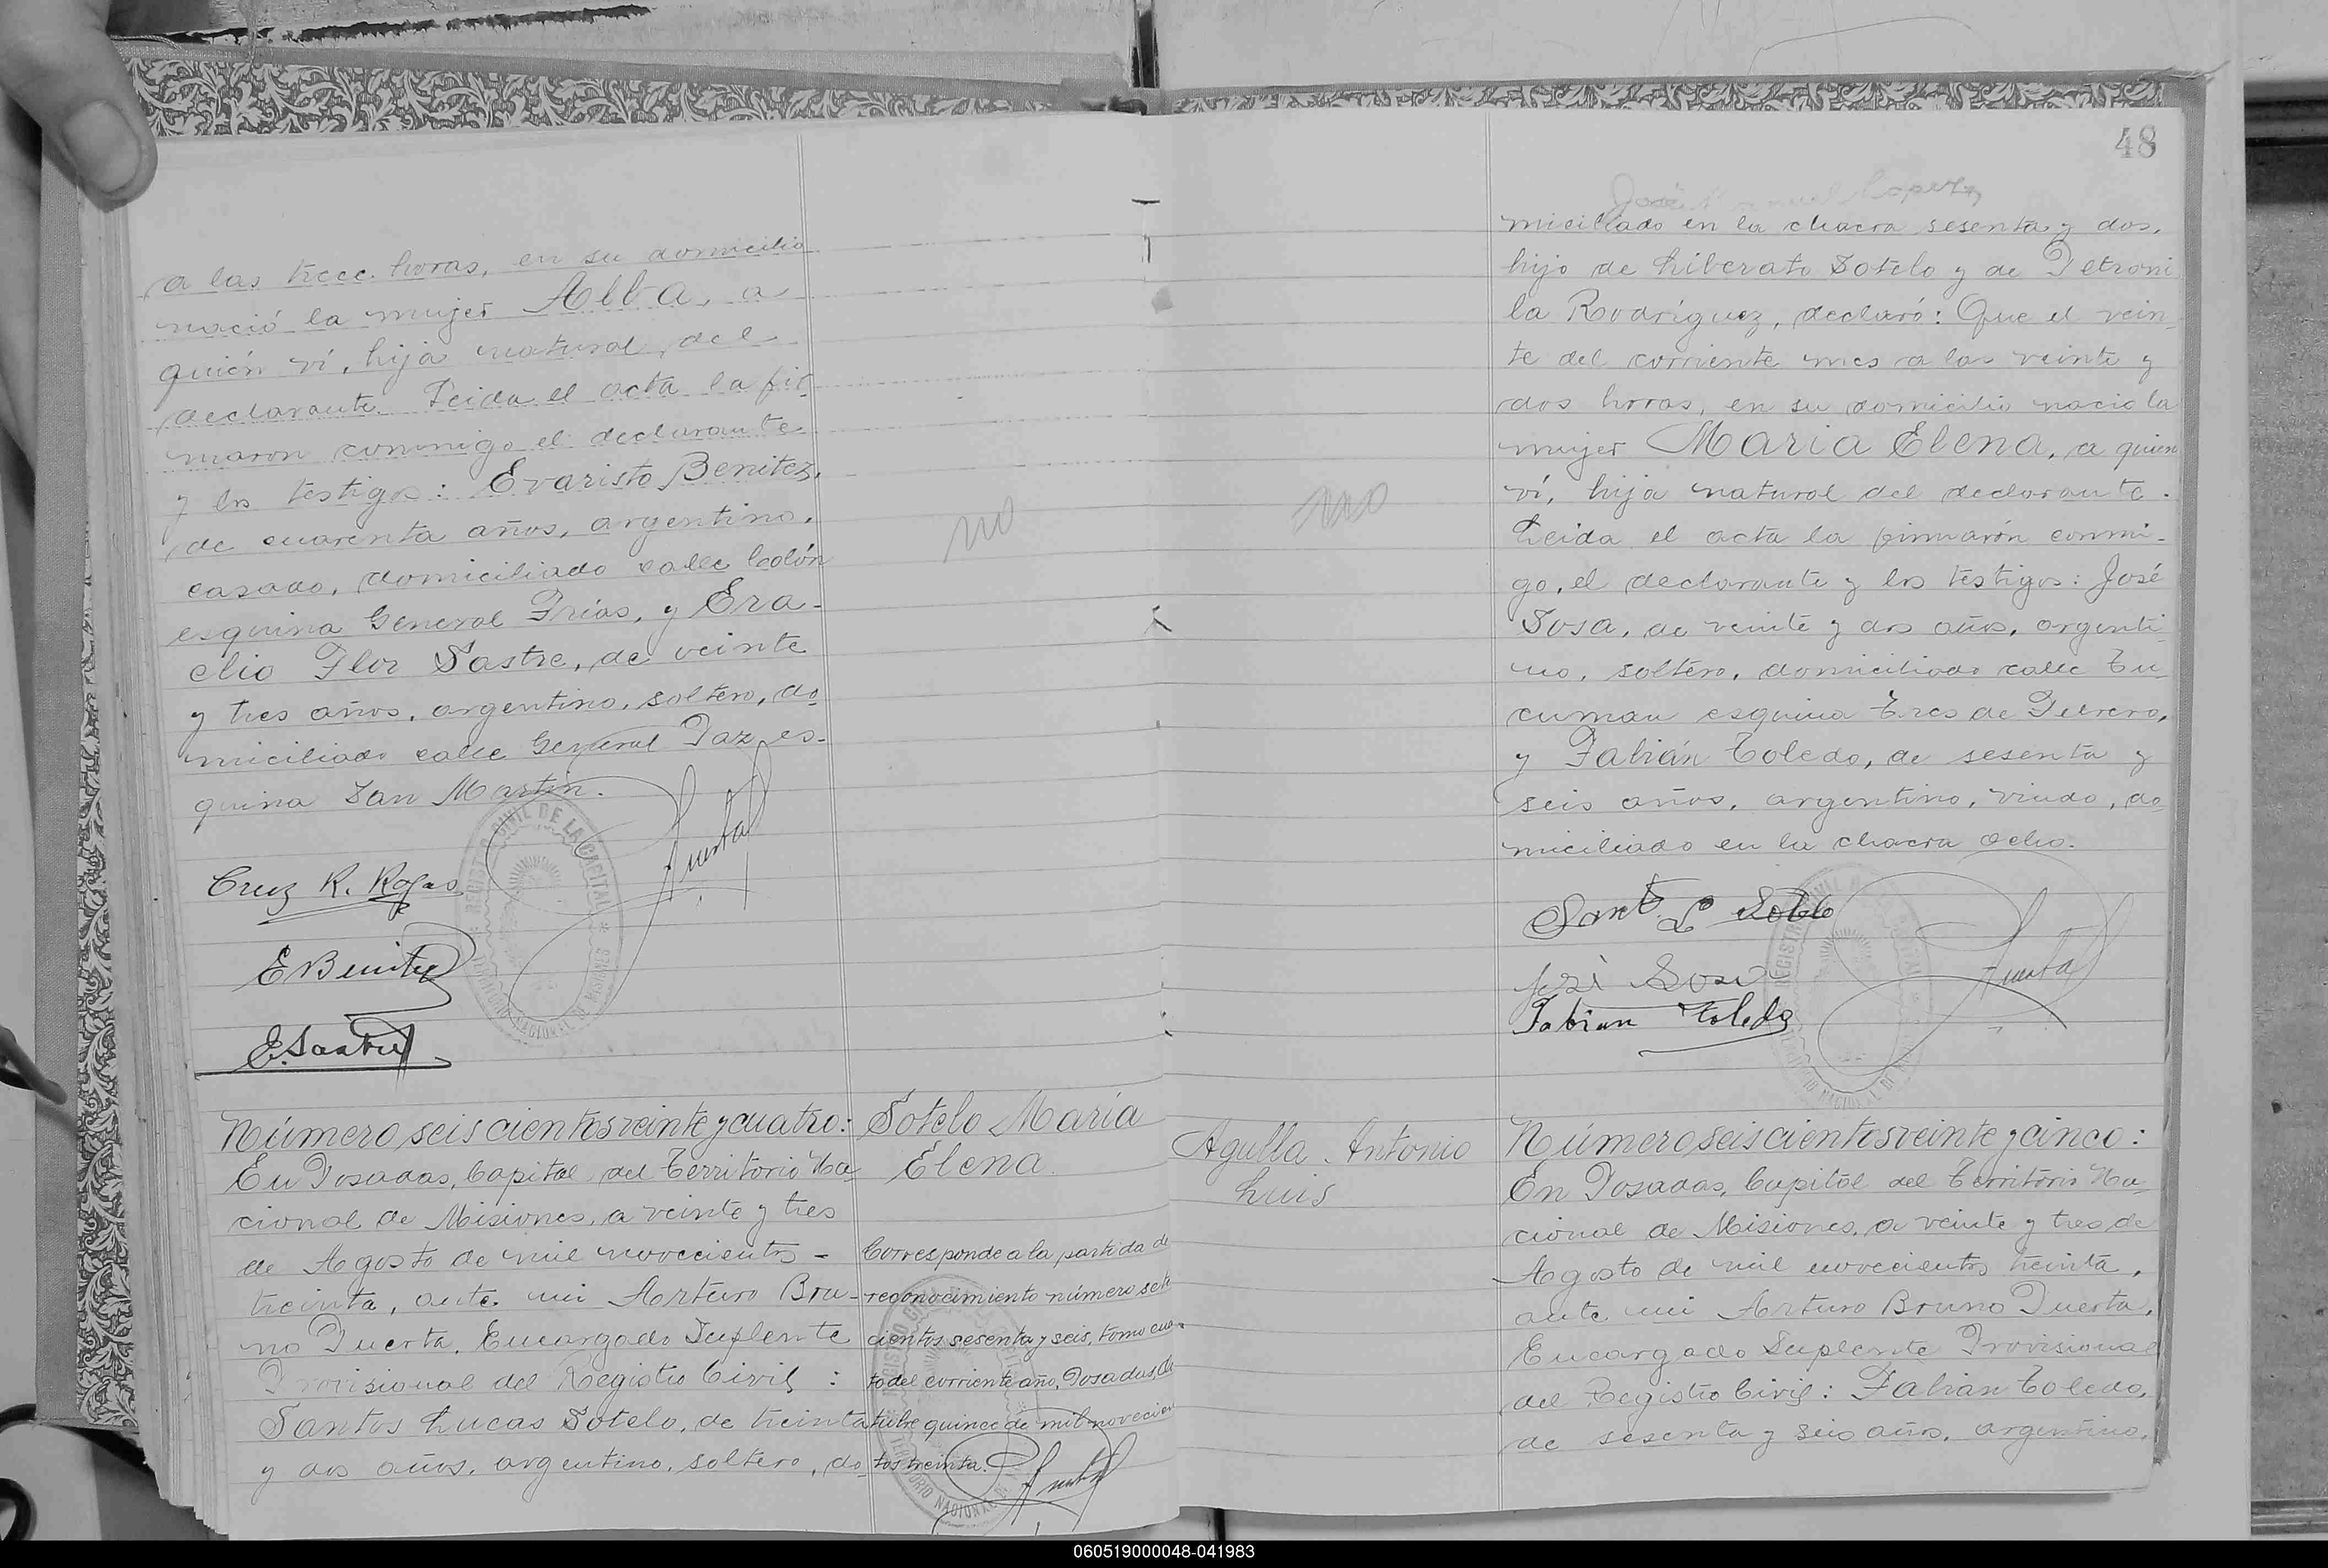 a las trece horas, en su domicilio
nació la mujer Alba, a
quién ví, hija natural del
declarante. Leida el acta la fir-
maron conmigo el declarante
y los testigos: Evaristo Benitez,
de cuarenta años, argentino,
casado, domiciliado calle Colón
esquina General Frías, y Era-
clio Flor Sastre, de veinte
y tres años, argentino, soltero, do-
miciliado calle General Paz es-
quina San Martín.
Cruz R. Rojas
E Benitez
E. Sastre
REGISTRO CIVIL DE LA CAPITAL
TERRITORIO NACIONAL DE MISIONES
Número seiscientos veinte y cuatro:
En Posadas, Capital del Territorio Na-
cional de Misiones, a veinte y tres
de Agosto de mil novecientos -
treinta, ante mi Arturo Bru-
no Puerta, Encargado Suplente
Provisional del Registro Civil:
Santos Lucas Sotelo, de treinta
y dos años, argentino, soltero, do-
no
Sotelo María
Elena
Corresponde a la partida de
reconocimiento número sete
cientos sesenta y seis, tomo cuar
to del corriente año, Posadas, Oc
tubre quince de mil novecien
tos treinta.
48
José Manuel Lopez
miciliado en la chacra sesenta y dos,
hijo de Liberato Sotelo y de Petroni
la Rodríguez, declaró: Que el vein-
te del corriente mes a las veinte y
dos horas, en su domicilio nació la
mujer María Elena, a quien
ví, hija natural del declarante.
Leida el acta la firmarón conmi-
go, el declarante y los testigos: José
Sosa, de veinte y dos años, argenti-
no, soltero, domiciliado calle Tu-
cuman esquina Tres de Febrero,
y Fabián Toledo, de sesenta y
seis años, argentino, viudo, do
miciliado en la chacra ocho.
Sant. L. Sotelo
José Sosa
Fabian Toledo
no
Agulla Antonio
Luis
Número seiscientos veinte y cinco:
En Posadas, Capital del Territorio Na-
cional de Misiones, a veinte y tres de
Agosto de mil novecientos treinta,
ante mi Arturo Bruno Puerta,
Encargado Suplente Provisional
del Registro Civil: Fabian Toledo,
de sesenta y seis años, argentino,
060519000048-041983